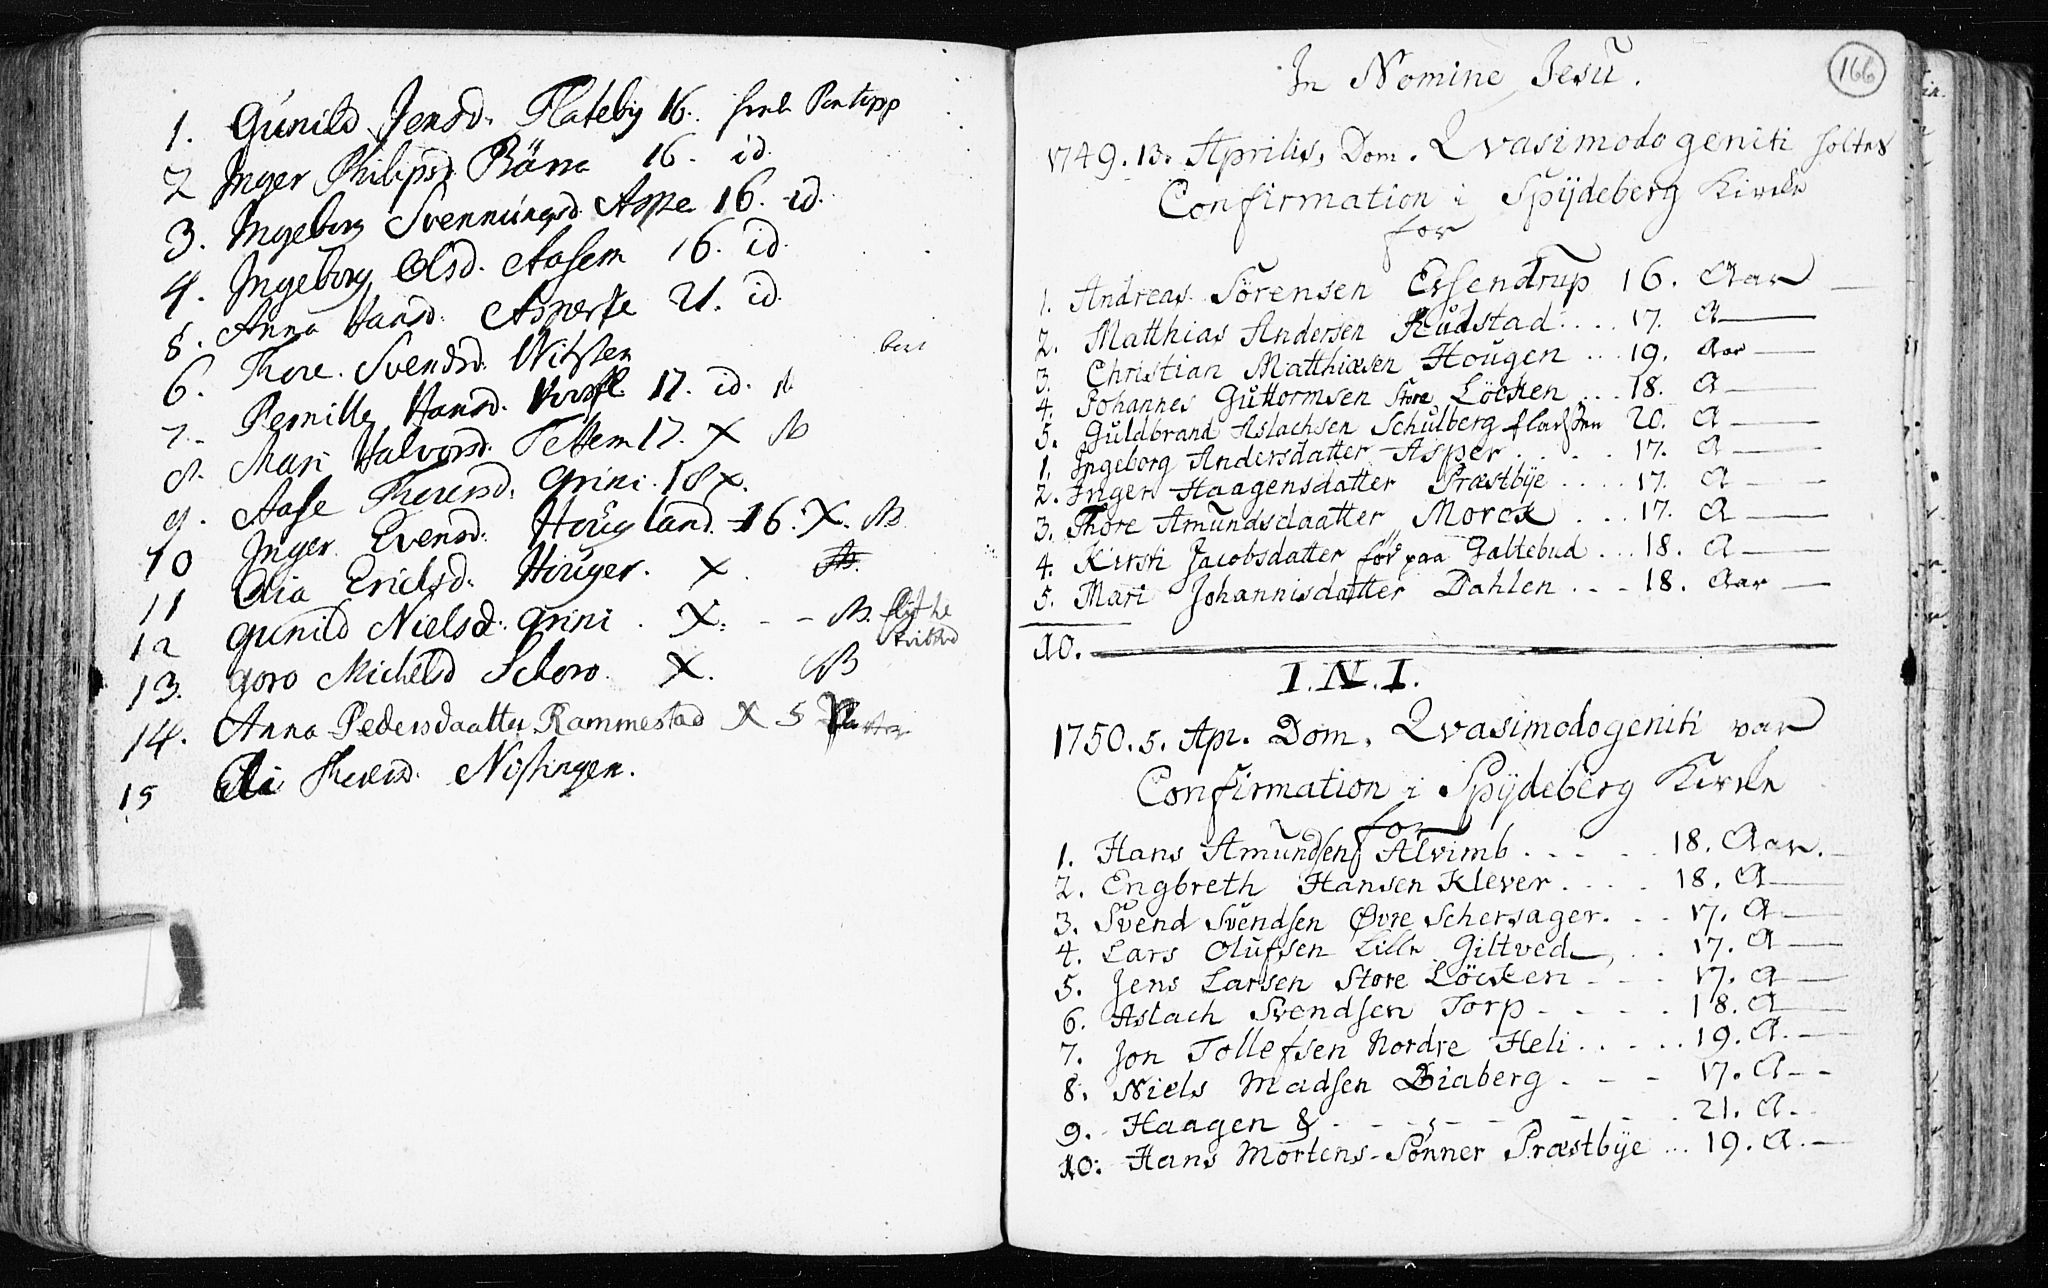 1. Gunild Jensd. Flateby 16.
2 Inger Philipsd. 16. id.
3. Ingeborg Svennungsd. Aspe 16. id.
4. Ingeborg Olsd. Aasem 16. id
5. Anna Hansd. 21. id.
6. Thore. Svendsd.
7. Pernille Hansd. 17. id.
8. Mari Halvorsd. 17. X
9. Aase Thoresd. Grini. 18 X.
10 Inger Evensd. Hougland. 16. X. NB
11 Olia Ericksd. Houger. X.
12 Gunild Nielsd. Grini. X. - - NB.
13. Goro Michelsd Schoro. X. NB
14. Anna Pedersdaatter Rammestad X 5
15 Eli Thoresd.
166
In Nomine Jesu.
1749. 13. Aprilis, Dom. Qvasimodogeniti holtes
Confirmation i Spÿdeberg Kircke
for
1. Andreas Sörensen Essendrup 16. Aar
2. Matthias Andersen Rudstad .... 17. A
3. Christian Matthiæsen Hougen ... 19. Aar
4. Johannes Guttormsen Store Löcken ... 18. A
5. Guldbrand Aslachsen Schulberg 20. A
1. Ingeborg Andersdatter Asper . . . . 17. A
2. Inger Haagensdatter Præstbÿe .... 17. A
3. Thore Amundsdaatter Morck . . . 17. A
4. Kirsti Jacobsdatter för paa Galtebud ... 18. A
5. Mari Johannisdatter Dahlen . - - 18. Aar
10.
I. N. I.
1750. 5. Apr. Dom. Qvasimodogeniti var
Confirmation i Spÿdeberg Kircke
for
1. Hans Amundsen Alvimb . . . . . 18. Aar.
2. Engbreth Hansen Klever . . . . 18. A
3. Svend Svendsen Øvre Schersager. . . 17. A
4. Lars Olufsen Lille Giltved . . 17. A
5. Jens Larsen Store Löcken - - - 17. A
6. Aslach Svendsen Torp - . . . . 18. A
7. Jon Tollefsen Nordre Heli . . . . . 19. A.
8. Niels Madsen Diaberg - - - 17. A - -
9. Haagen & - - - - - - - 21. A.
10. Hans Mortens-Sønner Præstbÿe ... 19. A.